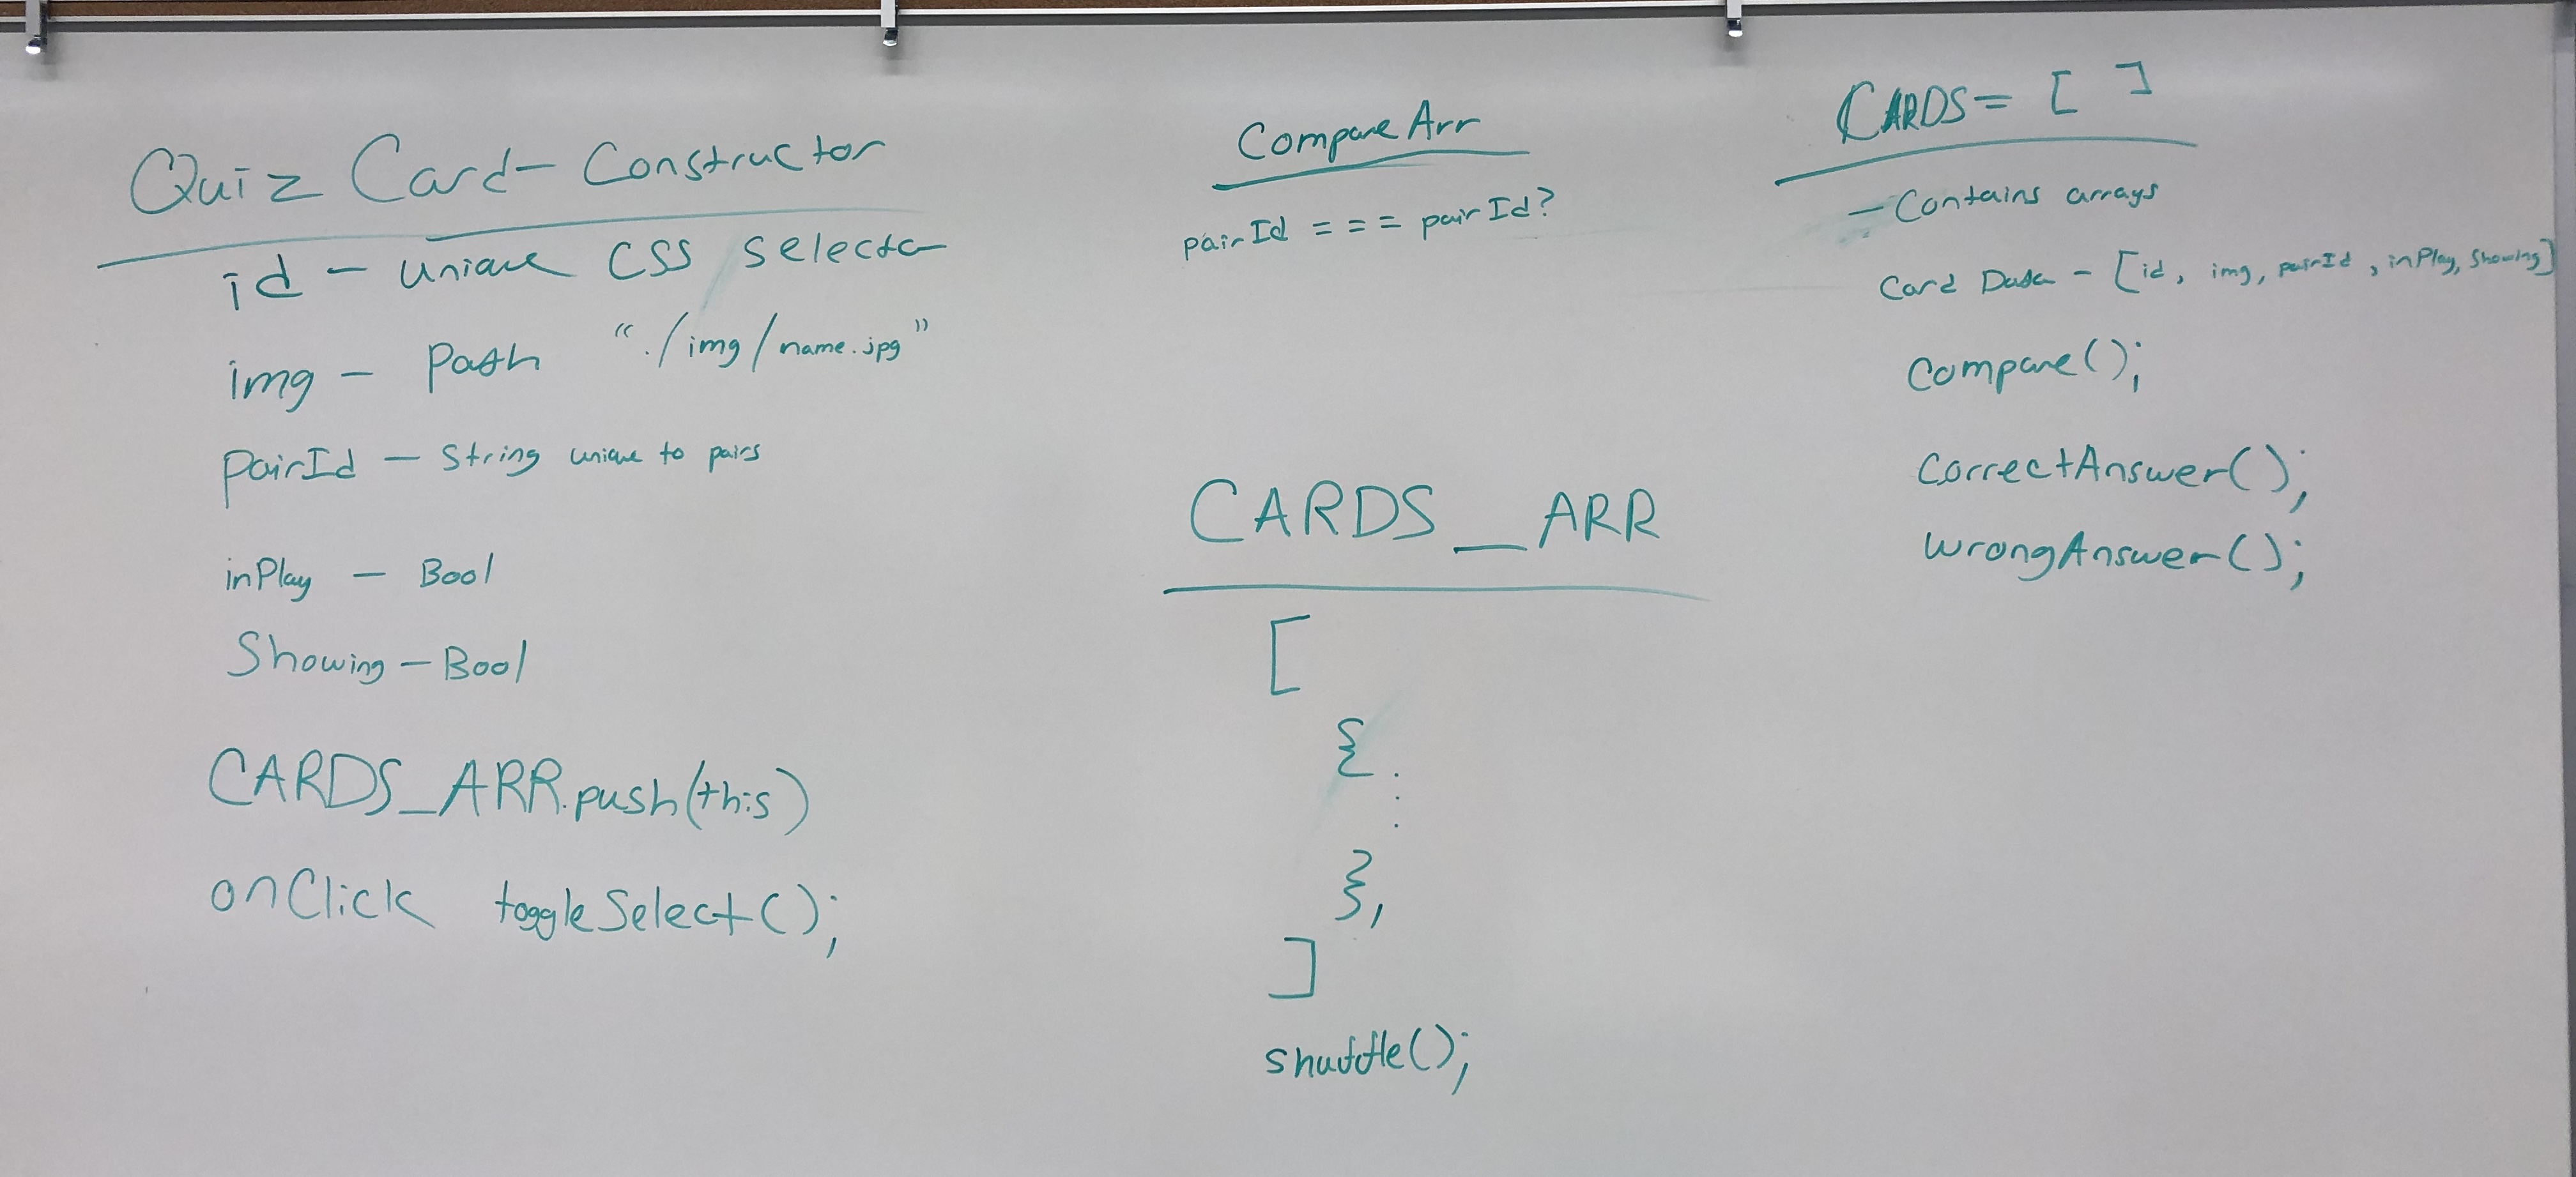 Quiz Card - Constructor
id - unique CSS selector
img - Path "./img/name.jpg"
PairId - String unique to pairs
inPlay - Bool
Showing - Bool
CARDS_ARR.push(this)
onClick toggleSelect();
Compare Arr
pairId === pairId?
CARDS_ARR
[
{ . . .
},
]
shuffle();
CARDS = [ ]
- Contains arrays
Card Data - [id, img, pairId, inPlay, Showing]
Compare();
CorrectAnswer();
WrongAnswer();